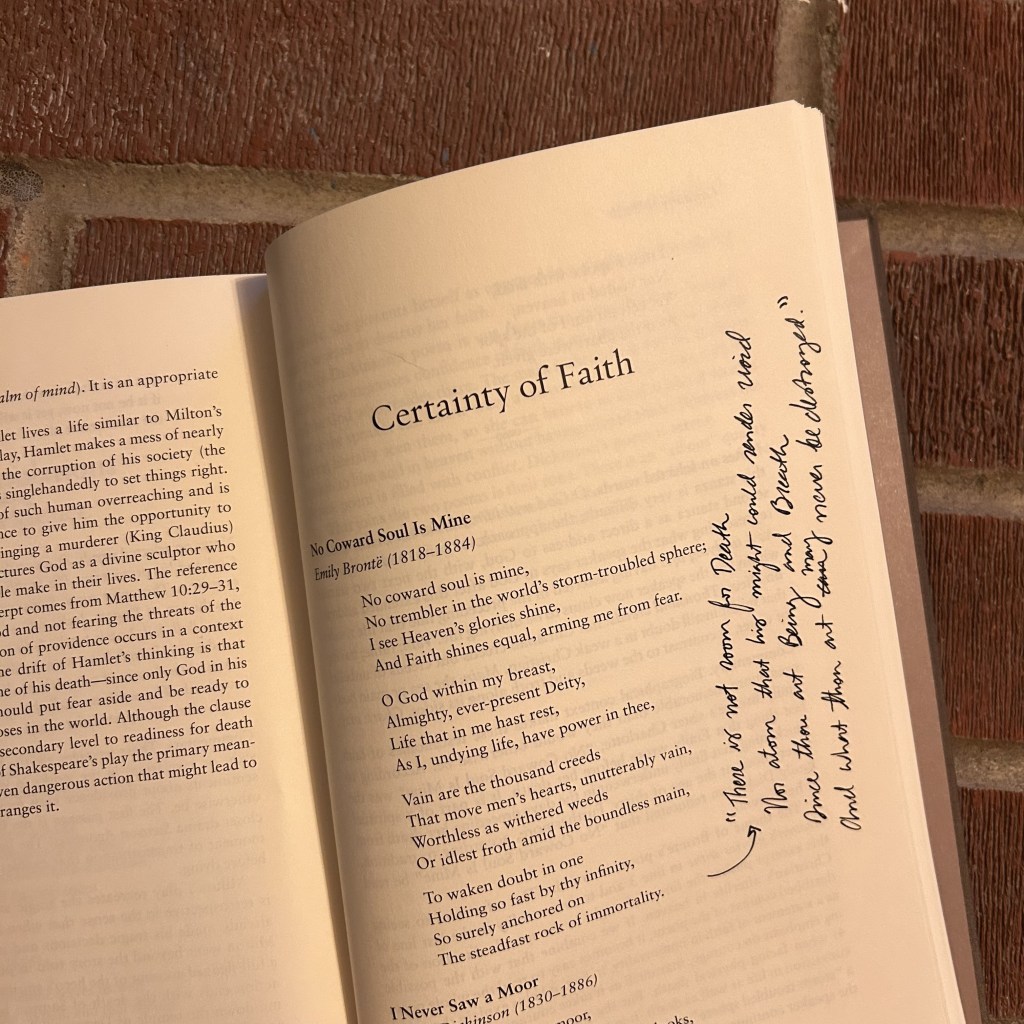 alm of mind). It is an appropriate
let lives a life similar to Milton’s
lay, Hamlet makes a mess of nearly
the corruption of his society (the
singlehandedly to set things right.
of such human overreaching and is
nce to give him the opportunity to
inging a murderer (King Claudius)
ctures God as a divine sculptor who
le make in their lives. The reference
erpt comes from Matthew 10:29–31,
d and not fearing the threats of the
on of providence occurs in a context
ne drift of Hamlet’s thinking is that
e of his death—since only God in his
hould put fear aside and be ready to
oses in the world. Although the clause
secondary level to readiness for death
of Shakespeare’s play the primary mean-
ven dangerous action that might lead to
ranges it.
Certainty of Faith
No Coward Soul Is Mine
Emily Brontë (1818–1884)
No coward soul is mine,
No trembler in the world’s storm-troubled sphere;
I see Heaven’s glories shine,
And Faith shines equal, arming me from fear.
O God within my breast,
Almighty, ever-present Deity,
Life that in me hast rest,
As I, undying life, have power in thee,
Vain are the thousand creeds
That move men’s hearts, unutterably vain,
Worthless as withered weeds
Or idlest froth amid the boundless main,
To waken doubt in one
Holding so fast by thy infinity,
So surely anchored on
The steadfast rock of immortality.
I Never Saw a Moor
kinson (1830–1886)
oor,
oks,
“There is not room for Death
Nor atom that his might could render void
Since thou art Being and Breath
And what thou art may never be destroyed.”